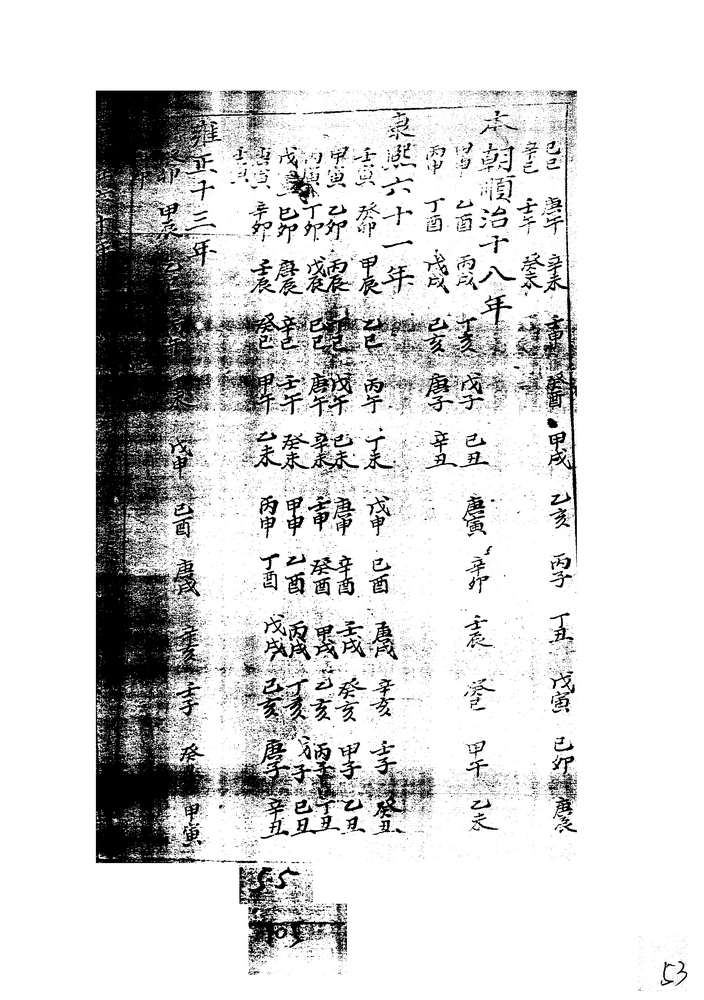 己巳 庚午 辛未 壬申 癸酉 甲戌 乙亥 丙子 丁丑 戊寅 己卯 庚辰
辛巳 壬午 癸未
本朝順治十八年
甲申 乙酉 丙戌 丁亥 戊子 己丑 庚寅 辛卯 壬辰 癸巳 甲午 乙未
丙申 丁酉 戊戌 己亥 庚子 辛丑
康熙六十一年
壬寅 癸卯 甲辰 乙巳 丙午 丁未 戊申 己酉 庚戌 辛亥 壬子 癸丑
甲寅 乙卯 丙辰 丁巳 戊午 己未 庚申 辛酉 壬戌 癸亥 甲子 乙丑
丙寅 丁卯 戊辰 己巳 庚午 辛未 壬申 癸酉 甲戌 乙亥 丙子 丁丑
戊寅 己卯 庚辰 辛巳 壬午 癸未 甲申 乙酉 丙戌 丁亥 戊子 己丑
庚寅 辛卯 壬辰 癸巳 甲午 乙未 丙申 丁酉 戊戌 己亥 庚子 辛丑
壬寅
雍正十三年
癸卯 甲辰 戊申 己酉 庚戌 辛亥 壬子 癸丑 甲寅
六十年
55
105
53